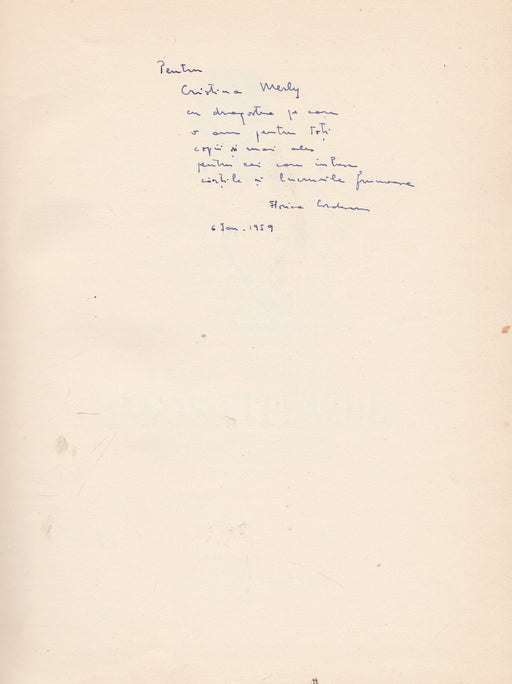 Pentru
Cristina Merly
cu dragostea pe care
o am pentru toți
copiii și mai ales
pentru cei care iubesc
cărțile și lucrurile frumoase
Florica Cordescu
6 Ian. 1959